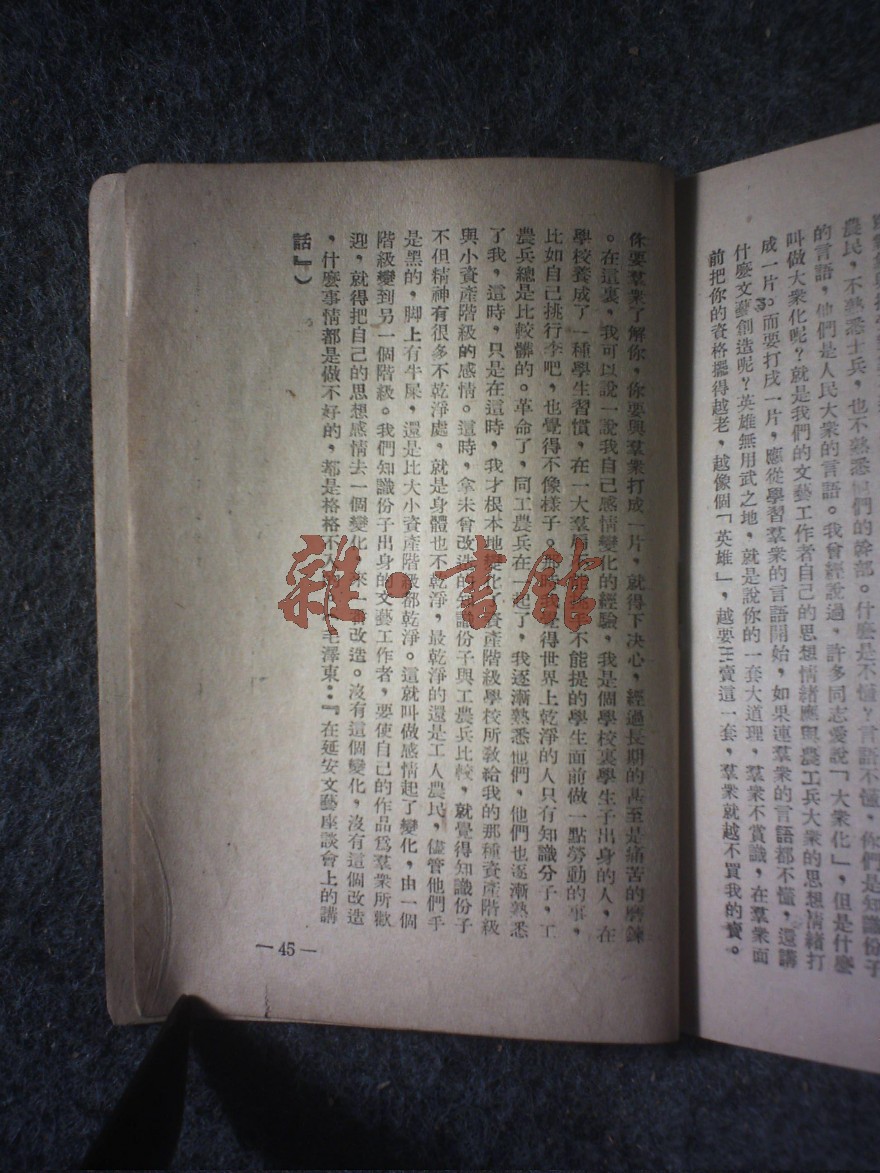 農民，不熟悉士兵，也不熟悉他們的幹部。什麼是不懂？言語不懂，就是知識份子
的言語，他們是人民大衆的言語。我曾經說過，許多同志愛說「大衆化」，但是什麼
叫做大衆化呢？就是我們的文藝工作者自己的思想情緒應與農工兵大衆的思想情緒打
成一片。而要打成一片，應從學習羣衆的言語開始，如果連羣衆的言語都不懂，還講
什麼文藝創造呢？英雄無用武之地，就是說你的一套大道理，羣衆不賞識，在羣衆面
前把你的資格擺得越老，越像個「英雄」，越要出賣這一套，羣衆就越不買我的賣。
你要羣衆了解你，你要與羣衆打成一片，就得下決心，經過長期的甚至是痛苦的磨鍊
。在這裏，我可以說一說我自己感情變化的經驗，我是個學校裏學生子出身的人，在
學校養成了一種學生習慣，在一大羣肩不能挑手不能提的學生面前做一點勞動的事，
比如自己挑行李吧，也覺得不像樣子。那時我覺得世界上乾淨的人只有知識分子，工
農兵總是比較髒的。革命了，同工農兵在一起了，我逐漸熟悉他們，他們也逐漸熟悉
了我，這時，只是在這時，我才根本地變化了資產階級學校所敎給我的那種資產階級
與小資產階級的感情。這時，拿未曾改造的知識份子與工農兵比較，就覺得知識份子
不但精神有很多不乾淨處，就是身體也不乾淨，最乾淨的還是工人農民，儘管他們手
是黑的，脚上有牛屎，還是比大小資產階級都乾淨。這就叫做感情起了變化，由一個
階級變到另一個階級。我們知識份子出身的文藝工作者，要使自己的作品爲羣衆所歡
迎，就得把自己的思想感情去一個變化，來一番改造。沒有這個變化，沒有這個改造
，什麼事情都是做不好的，都是格格不入毛澤東：『在延安文藝座談會上的講
話』）
—45—
雜·書館